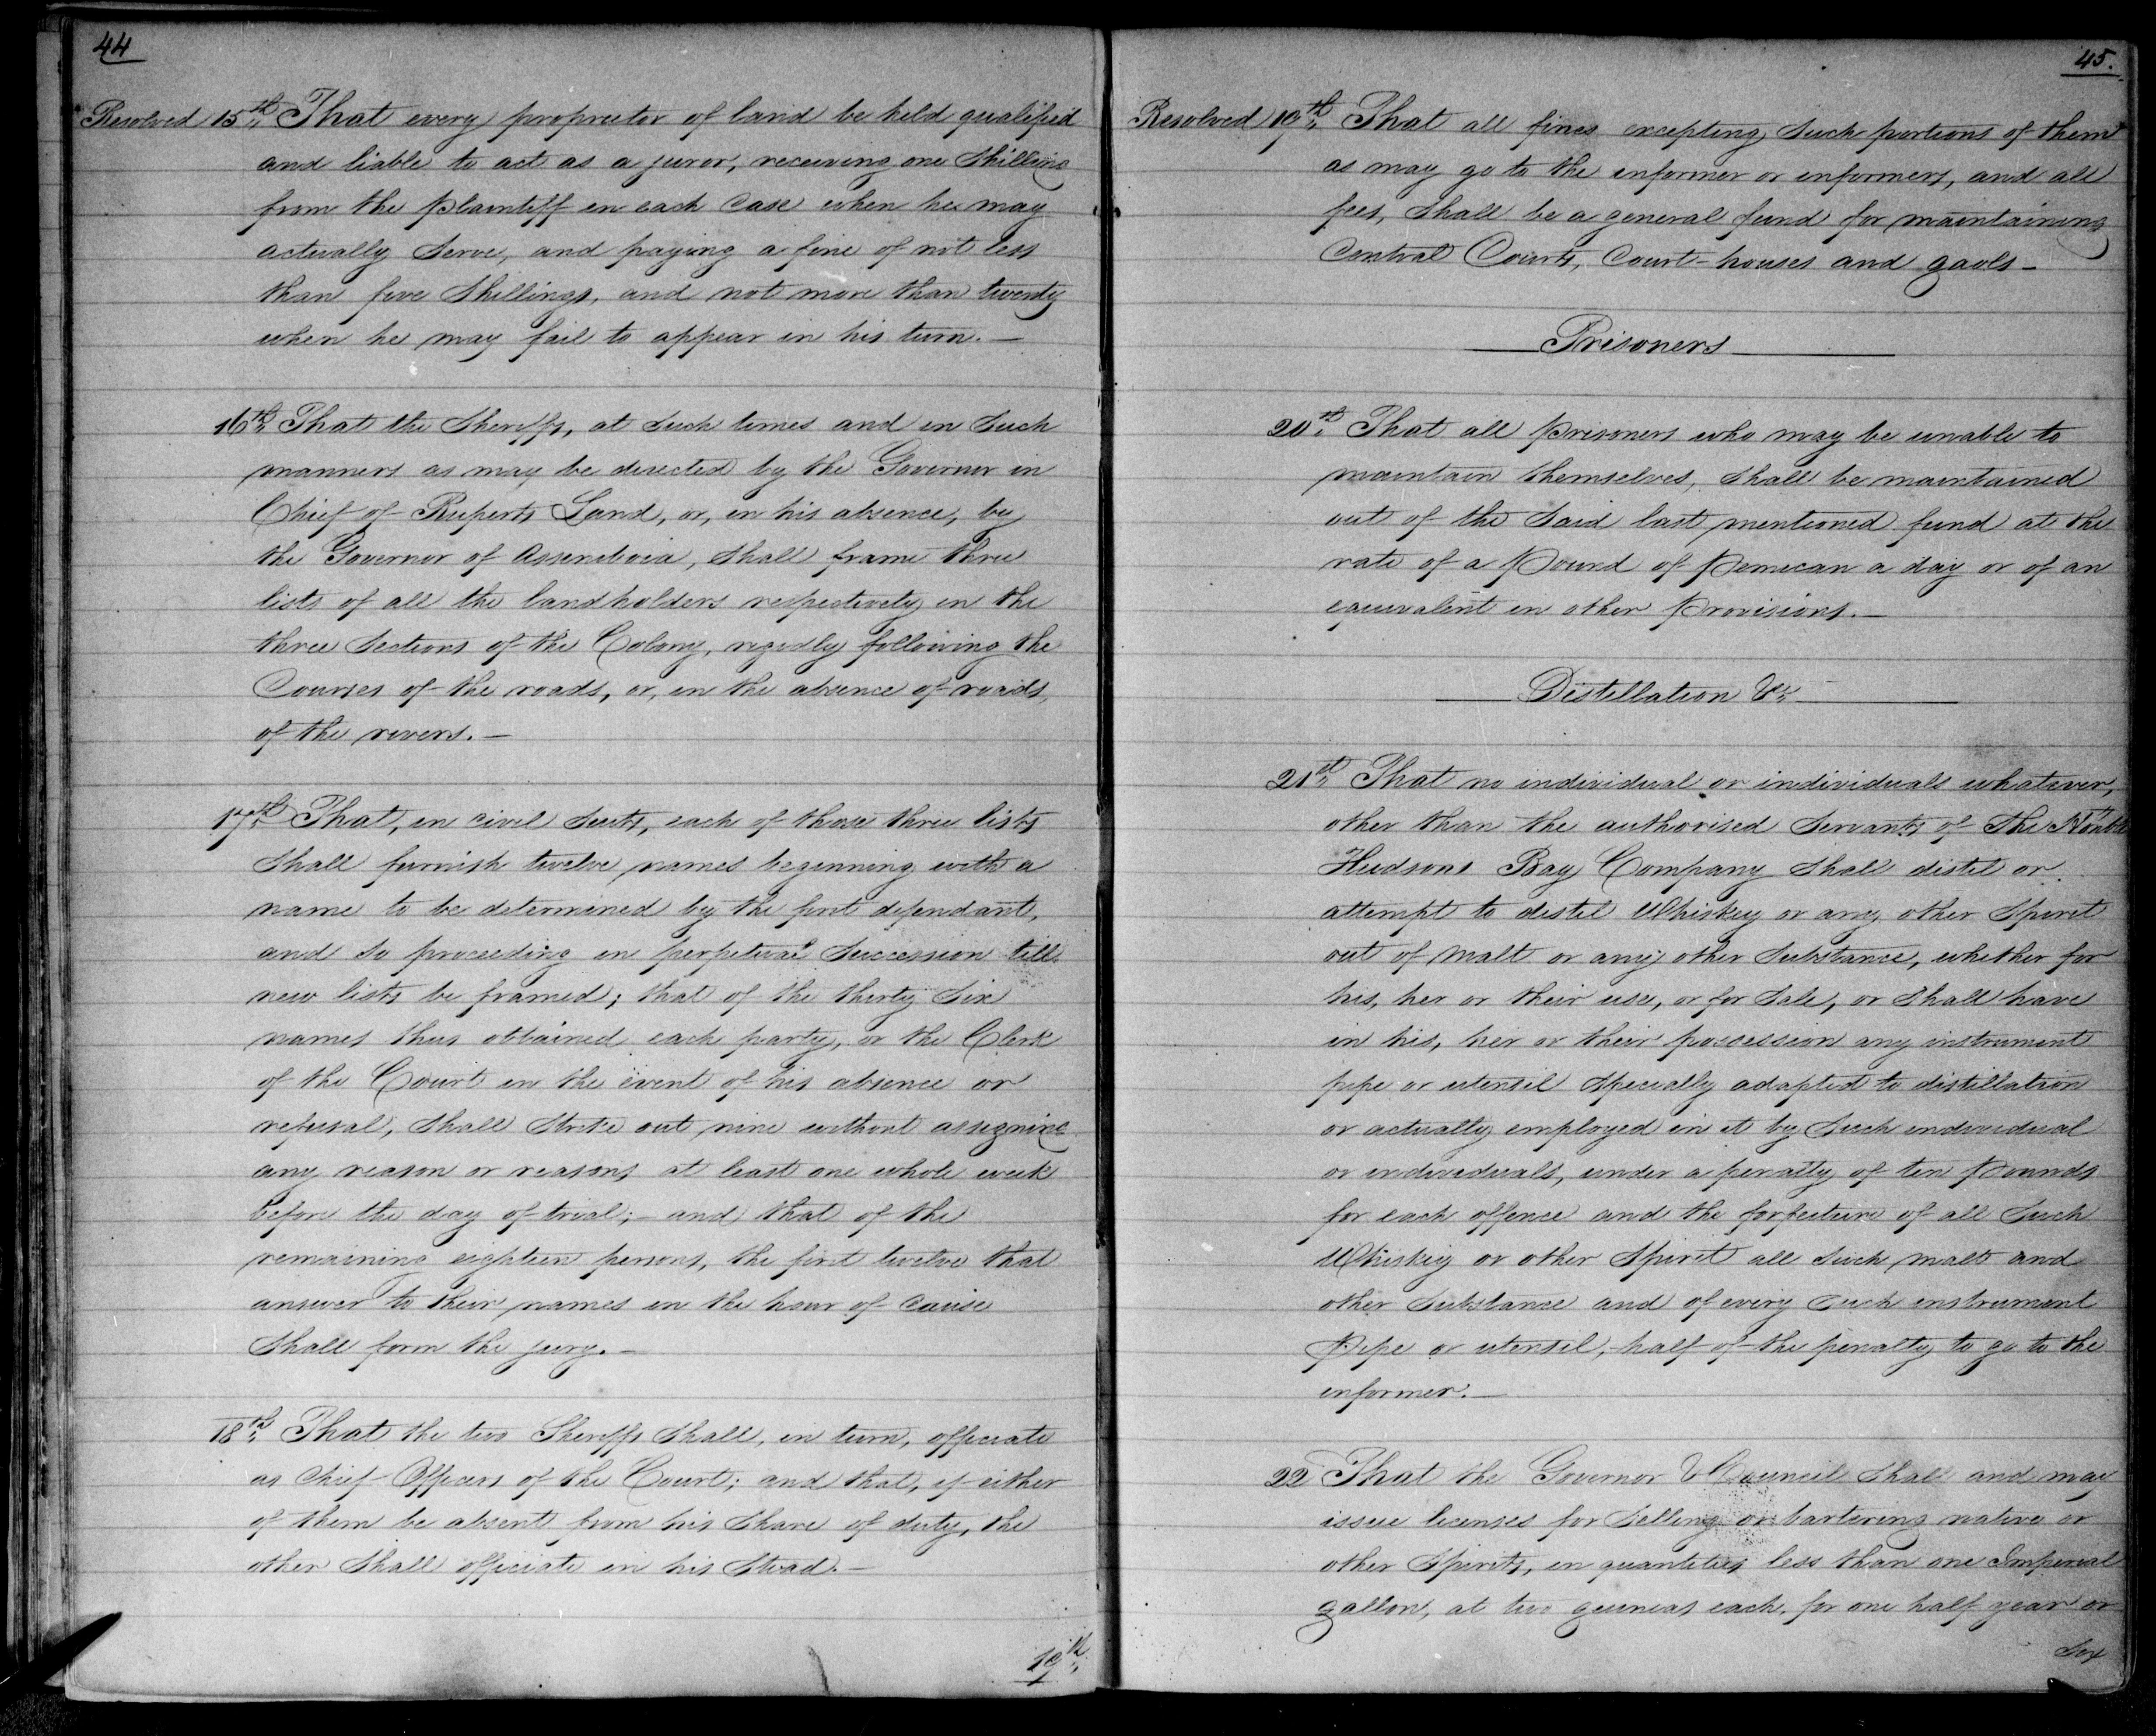 44
Resolved 15th That every proprietor of land be held qualified
and liable to act as a juror, receiving one Shilling
from the Plaintiff in each Case when he may
actually Serve, and paying a fine of not less
than five Shillings, and not more than twenty
when he may fail to appear in his turn. —
16th That the Sheriffs, at Such times and in Such
manners as may be directed by the Governor in
Chief of Ruperts Land, or, in his absence, by
the Governor of Assiniboia, Shall frame three
lists of all the landholders respectively in the
three Sections of the Colony, rigidly following the
Courses of the roads, or, in the absence of roads,
of the rivers. —
17th That, in civil Suits, each of those three lists
Shall furnish twelve names beginning with a
name to be determined by the first defendant,
and So proceeding in perpetual Succession till
new lists be framed; that of the thirty Six
names thus obtained each party, or the Clerk
of the Court in the event of his absence or
refusal, Shall Strike out nine without assigning
any reason or reasons at least one whole week
before the day of trial; – and that of the
remaining eighteen persons, the first twelve that
answer to their names in the hour of Cause
Shall form the jury. —
18th That the two Sheriffs Shall, in turn, officiate
as Chief Officers of the Court; and that, if either
of them be absent from his Share of duty, the
other Shall officiate in his Stead. —
19th
45.
Resolved 19th That all fines excepting Such portions of them
as may go to the informer or informers, and all
fees, Shall be a general fund for maintaining
Central Courts, Court-houses and gaols —
Prisoners
20th That all Prisoners who may be unable to
maintain themselves, Shall be maintained
out of the Said last mentioned fund at the
rate of a Pound of Pemican a day or of an
equivalent in other Provisions. —
Distillation &c
21st That no individual or individuals whatever,
other than the authorised Servants of The Honble
Hudsons Bay Company Shall distil or
attempt to distil Whiskey or any other Spirit
out of Malt or any other Substance, whether for
his, her or their use, or for Sale, or Shall have
in his, her or their possession any instrument
pipe or utensil Specially adapted to distillation
or actually employed in it by Such individual
or individuals, under a penalty of ten Pounds
for each offence and the forfeiture of all Such
Whiskey or other Spirit all Such malt and
other Substance and of every Such instrument
Pipe or utensil; half of the penalty to go to the
informer. —
22 That the Governor & Council Shall and may
issue licenses for Selling or bartering native or
other Spirits, in quantities less than one Imperial
gallon, at two guineas each, for one half year or
for